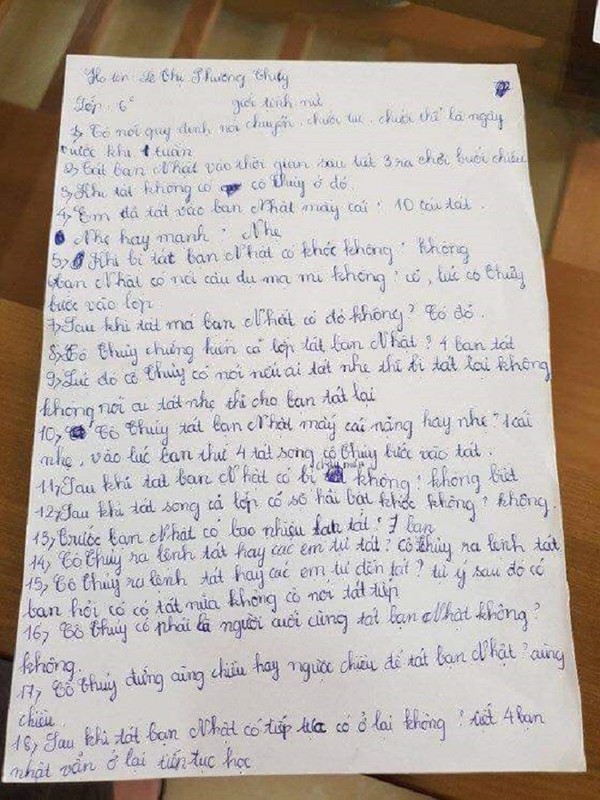 Họ tên: Lê Thị Phương Thủy
Lớp: 6² giới tính nữ
1, Cô nói quy định nói chuyện, chười tục, chười thề là ngày
trước khi 1 tuần
2, Tát bạn Nhật vào thời gian sau tiết 3 ra chơi buổi chiều
3, Khi tát không có có Thủy ở đó.
4, Em đã tát vào bạn Nhật mấy cái? 10 cái tát.
Nhẹ hay mạnh? Nhẹ
5, Khi bị tát bạn Nhật có khóc không? không
6, bạn Nhật có nói câu du ma mi không? có, lúc cô Thủy
bước vào lớp
7, Sau khi tát má bạn Nhật có đỏ không? Có đỏ.
8, Cô Thủy chứng kiến cả lớp tát bạn Nhật? 4 bạn tát
9, Lúc đó cô Thủy có nói nếu ai tát nhẹ thì bị tát lại không
không nói ai tát nhẹ thì cho bạn tát lại
10, Cô Thủy tát bạn Nhật mấy cái nặng hay nhẹ? 1 cái
nhẹ, vào lúc bạn thứ 4 tát song cô Thủy bước vào tát.
11, Sau khi tát bạn Nhật có bị chảy máu không? không biết
12, Sau khi tát song cả lớp có sợ hãi bật khóc không? không.
13, Trước bạn Nhật có bao nhiêu bạn tát? 7 bạn
14, Cô Thủy ra lệnh tát hay các em tự tát? Cô Thủy ra lệnh tát
15, Cô Thủy ra lệnh tát hay các em tự đến tát? tự ý sau đó có
bạn hỏi cô có tát nữa không cô nói tát tiếp
16, Cô Thủy có phải là người cuối cùng tát bạn Nhật không?
không.
17, Cô Thủy đứng cùng chiều hay ngược chiều để tát bạn Nhật? cùng
chiều.
18, Sau khi tát bạn Nhật có tiếp tục có ở lại không? tiết 4 bạn
nhật vẫn ở lại tiếp tục học